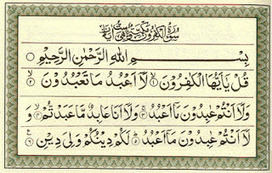 سُورَةُ الْكٰفِرُونَ
بِسْمِ اللهِ الرَّحْمٰنِ الرَّحِيْمِ
قُلْ يٰٓأَيُّهَا الْكٰفِرُوْنَ ١ لَآ أَعْبُدُ مَا تَعْبُدُوْنَ ٢
وَلَآ أَنْتُمْ عٰبِدُوْنَ مَآ أَعْبُدُ ٣ وَلَآ أَنَا عَابِدٌ مَّا عَبَدْتُّمْ ٤ وَ
لَآ أَنْتُمْ عٰبِدُوْنَ مَآ أَعْبُدُ ٥ لَكُمْ دِيْنُكُمْ وَلِيَ دِيْنِ ٦